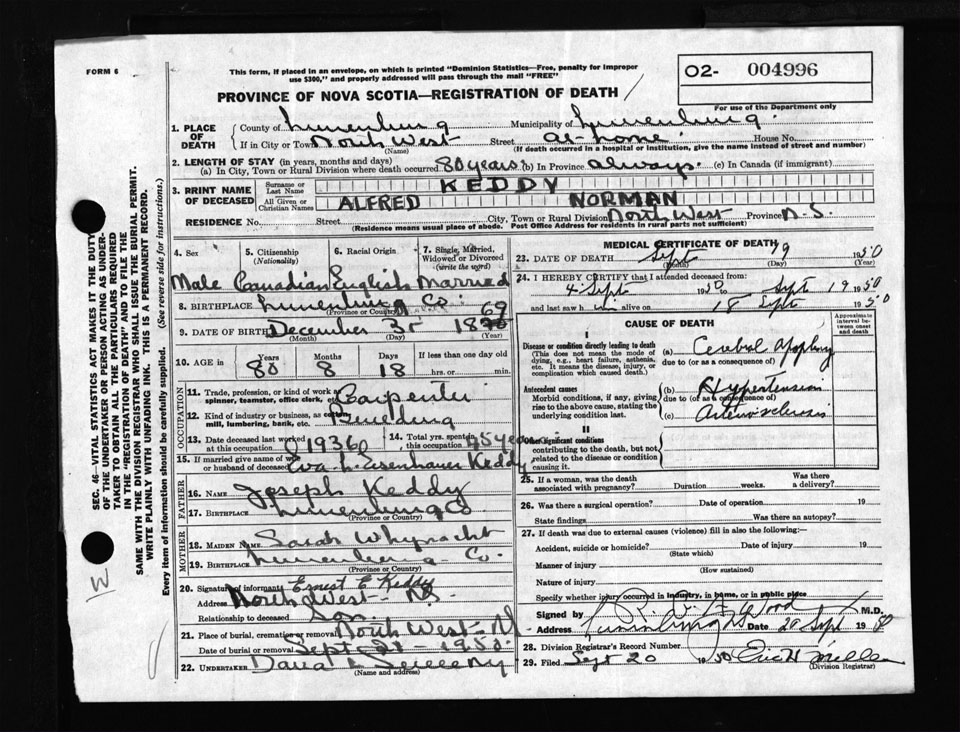 FORM 6
This form, if placed in an envelope, on which is printed "Dominion Statistics—Free, penalty for improper
use $300," and properly addressed will pass through the mail "FREE"
02- 004996
PROVINCE OF NOVA SCOTIA—REGISTRATION OF DEATH
For use of the Department only
1. PLACE OF DEATH County of Lunenburg Municipality of Lunenburg
If in City or Town North West Street at home House No.
(Name) (If death occurred in a hospital or institution, give the name instead of street and number)
2. LENGTH OF STAY (in years, months and days)
(a) In City, Town or Rural Division where death occurred 80 years (b) In Province always (c) In Canada (if immigrant)
3. PRINT NAME OF DECEASED Surname or Last Name KEDDY
All Given or Christian Names ALFRED NORMAN
RESIDENCE No. Street City, Town or Rural Division North West Province N.S.
(Residence means usual place of abode. Post Office Address for residents in rural parts not sufficient)
4. Sex 5. Citizenship (Nationality) 6. Racial Origin 7. Single, Married, Widowed or Divorced (write the word)
Male Canadian English Married
8. BIRTHPLACE Lunenburg Co.
(Province or Country)
69
9. DATE OF BIRTH December 31 1870
(Month) (Day)
10. AGE IN Years Months Days If less than one day old
80 8 18 hrs. or min.
OCCUPATION
11. Trade, profession, or kind of work as spinner, teamster, office clerk, etc. Carpenter
12. Kind of industry or business, as cotton mill, lumbering, bank, etc. Building
13. Date deceased last worked at this occupation 1936 14. Total yrs. spent in this occupation 45 years
15. If married give name of wife or husband of deceased Eva L. Eisenhauer Keddy
FATHER
16. NAME Joseph Keddy
17. BIRTHPLACE Lunenburg Co
(Province or Country)
MOTHER
18. MAIDEN NAME Sarah Whynacht
19. BIRTHPLACE Lunenburg Co.
(Province or Country)
20. Signature of informant Ernest E Keddy
Address North West N.S.
Relationship to deceased Son
21. Place of burial, cremation or removal North West N.S.
Date of burial or removal Sept 21 - 1950
22. UNDERTAKER
(Name and address)
MEDICAL CERTIFICATE OF DEATH
23. DATE OF DEATH Sept 19 1950
(Month) (Day)
24. I HEREBY CERTIFY that I attended deceased from:
4 Sept 1950 to Sept 19 1950
and last saw h im alive on 18 Sept 1950
CAUSE OF DEATH
Approximate interval between onset and death
I
Disease or condition directly leading to death
(This does not mean the mode of dying, e.g. heart failure, asthenia, etc. It means the disease, injury, or complication which caused death.)
(a) Cerebral Apoplexy
due to (or as a consequence of)
Antecedent causes
Morbid conditions, if any, giving rise to the above cause, stating the underlying condition last.
(b) Hypertension
due to (or as a consequence of)
(c) Arteriosclerosis
II
Other significant conditions contributing to the death, but not related to the disease or condition causing it.
25. If a woman, was the death associated with pregnancy? Duration weeks. Was there a delivery?
26. Was there a surgical operation? Date of operation 19
State findings Was there an autopsy?
27. If death was due to external causes (violence) fill in also the following:—
Accident, suicide or homicide? Date of injury 19
(State which)
Manner of injury
(How sustained)
Nature of injury
Specify whether injury occurred in industry, in home, or in public place
Signed by Wood M.D.
Address Lunenburg NS Date 20 Sept 1950
28. Division Registrar's Record Number
29. Filed Sept 20 1950
(Division Registrar)
SEC. 46—VITAL STATISTICS ACT MAKES IT THE DUTY
OF THE UNDERTAKER OR PERSON ACTING AS UNDER-
TAKER TO OBTAIN ALL THE PARTICULARS REQUIRED
IN THE "REGISTRATION OF DEATH" AND TO FILE THE
SAME WITH THE DIVISION REGISTRAR WHO SHALL ISSUE THE BURIAL PERMIT.
WRITE PLAINLY WITH UNFADING INK. THIS IS A PERMANENT RECORD.
Every item of information should be carefully supplied. (See reverse side for instructions.)